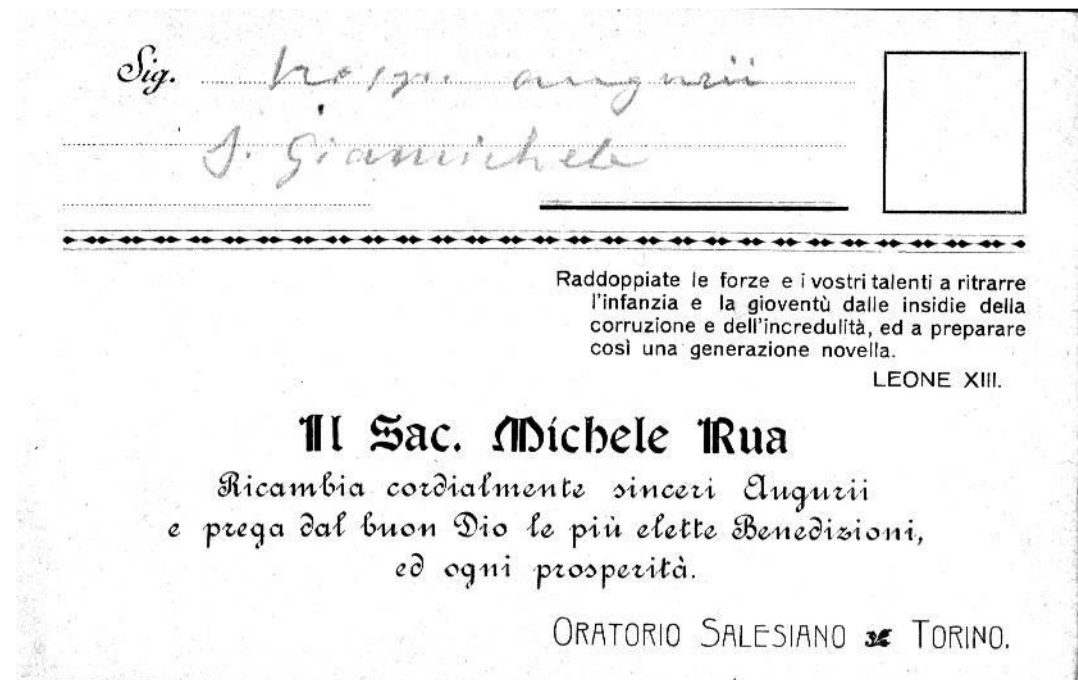 Sig. augurii
Giamichele
Raddoppiate le forze e i vostri talenti a ritrarre
l'infanzia e la gioventù dalle insidie della
corruzione e dell'incredulità, ed a preparare
così una generazione novella.
LEONE XIII.
Il Sac. Michele Rua
Ricambia cordialmente sinceri Augurii
e prega dal buon Dio le più elette Benedizioni,
ed ogni prosperità.
ORATORIO SALESIANO TORINO.